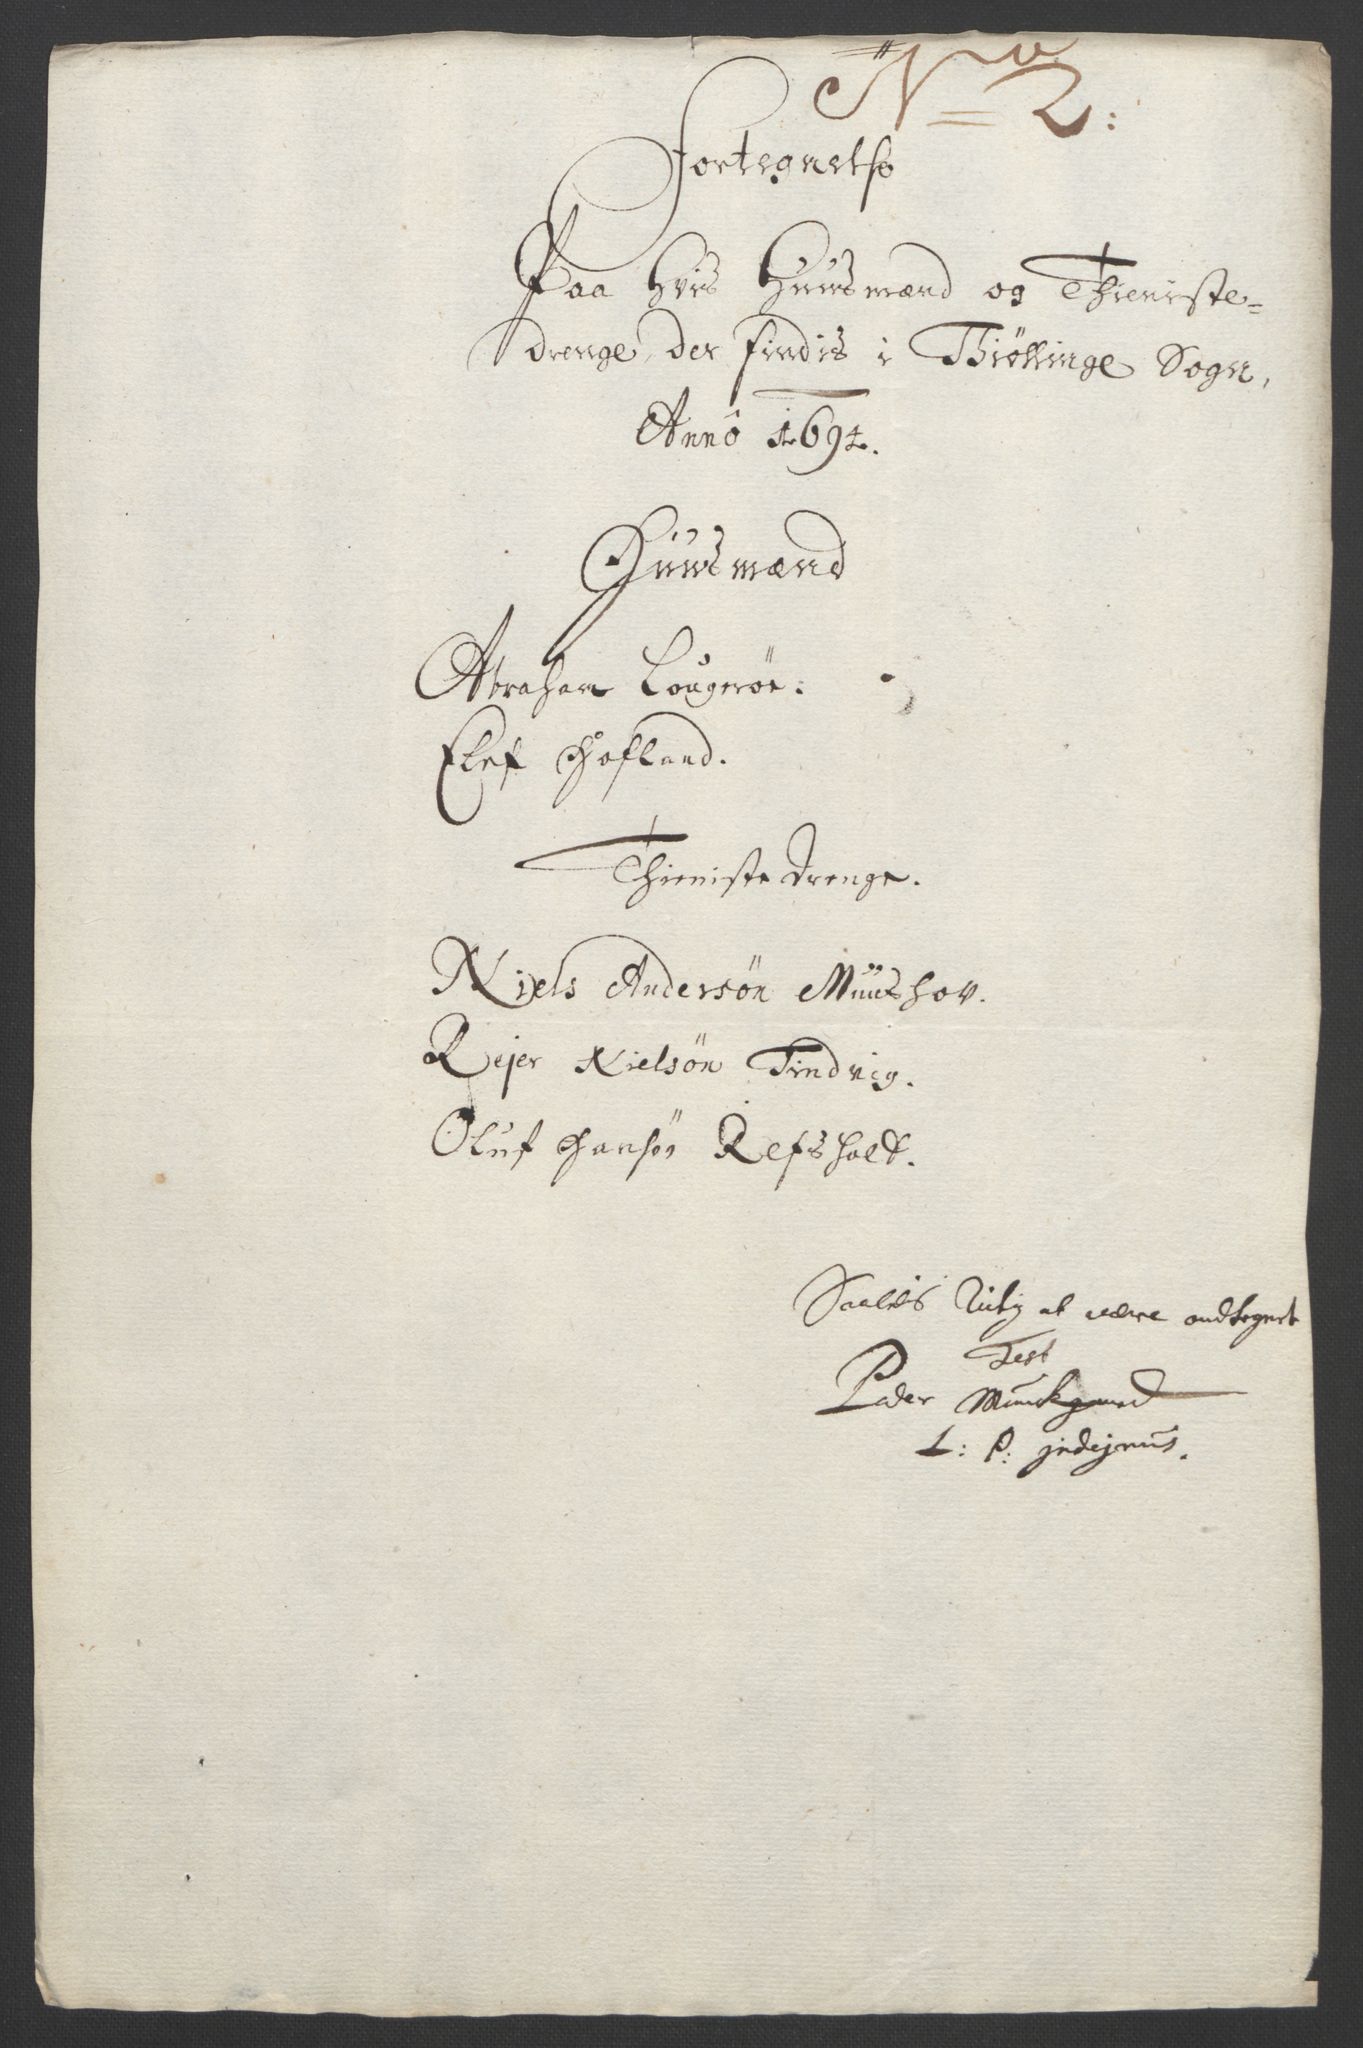 No 2:
Fortegnelse
Paa hvis Huusmænd og Thieniste=
drenge, der findis i Thiøllinge Sogn,
Anno 1694.
Huusmænd
Abraham Lougerøe:
Elef Hofland.
Thieniste drenge.
Niels Andersøn Muushov.
Rejer Nielsøn Tindvig.
Oluf Hansøn Refsholt.
Saaledis Rigtig at være andtegnet
Test
Peder Munckgaard
L: P: indignus.